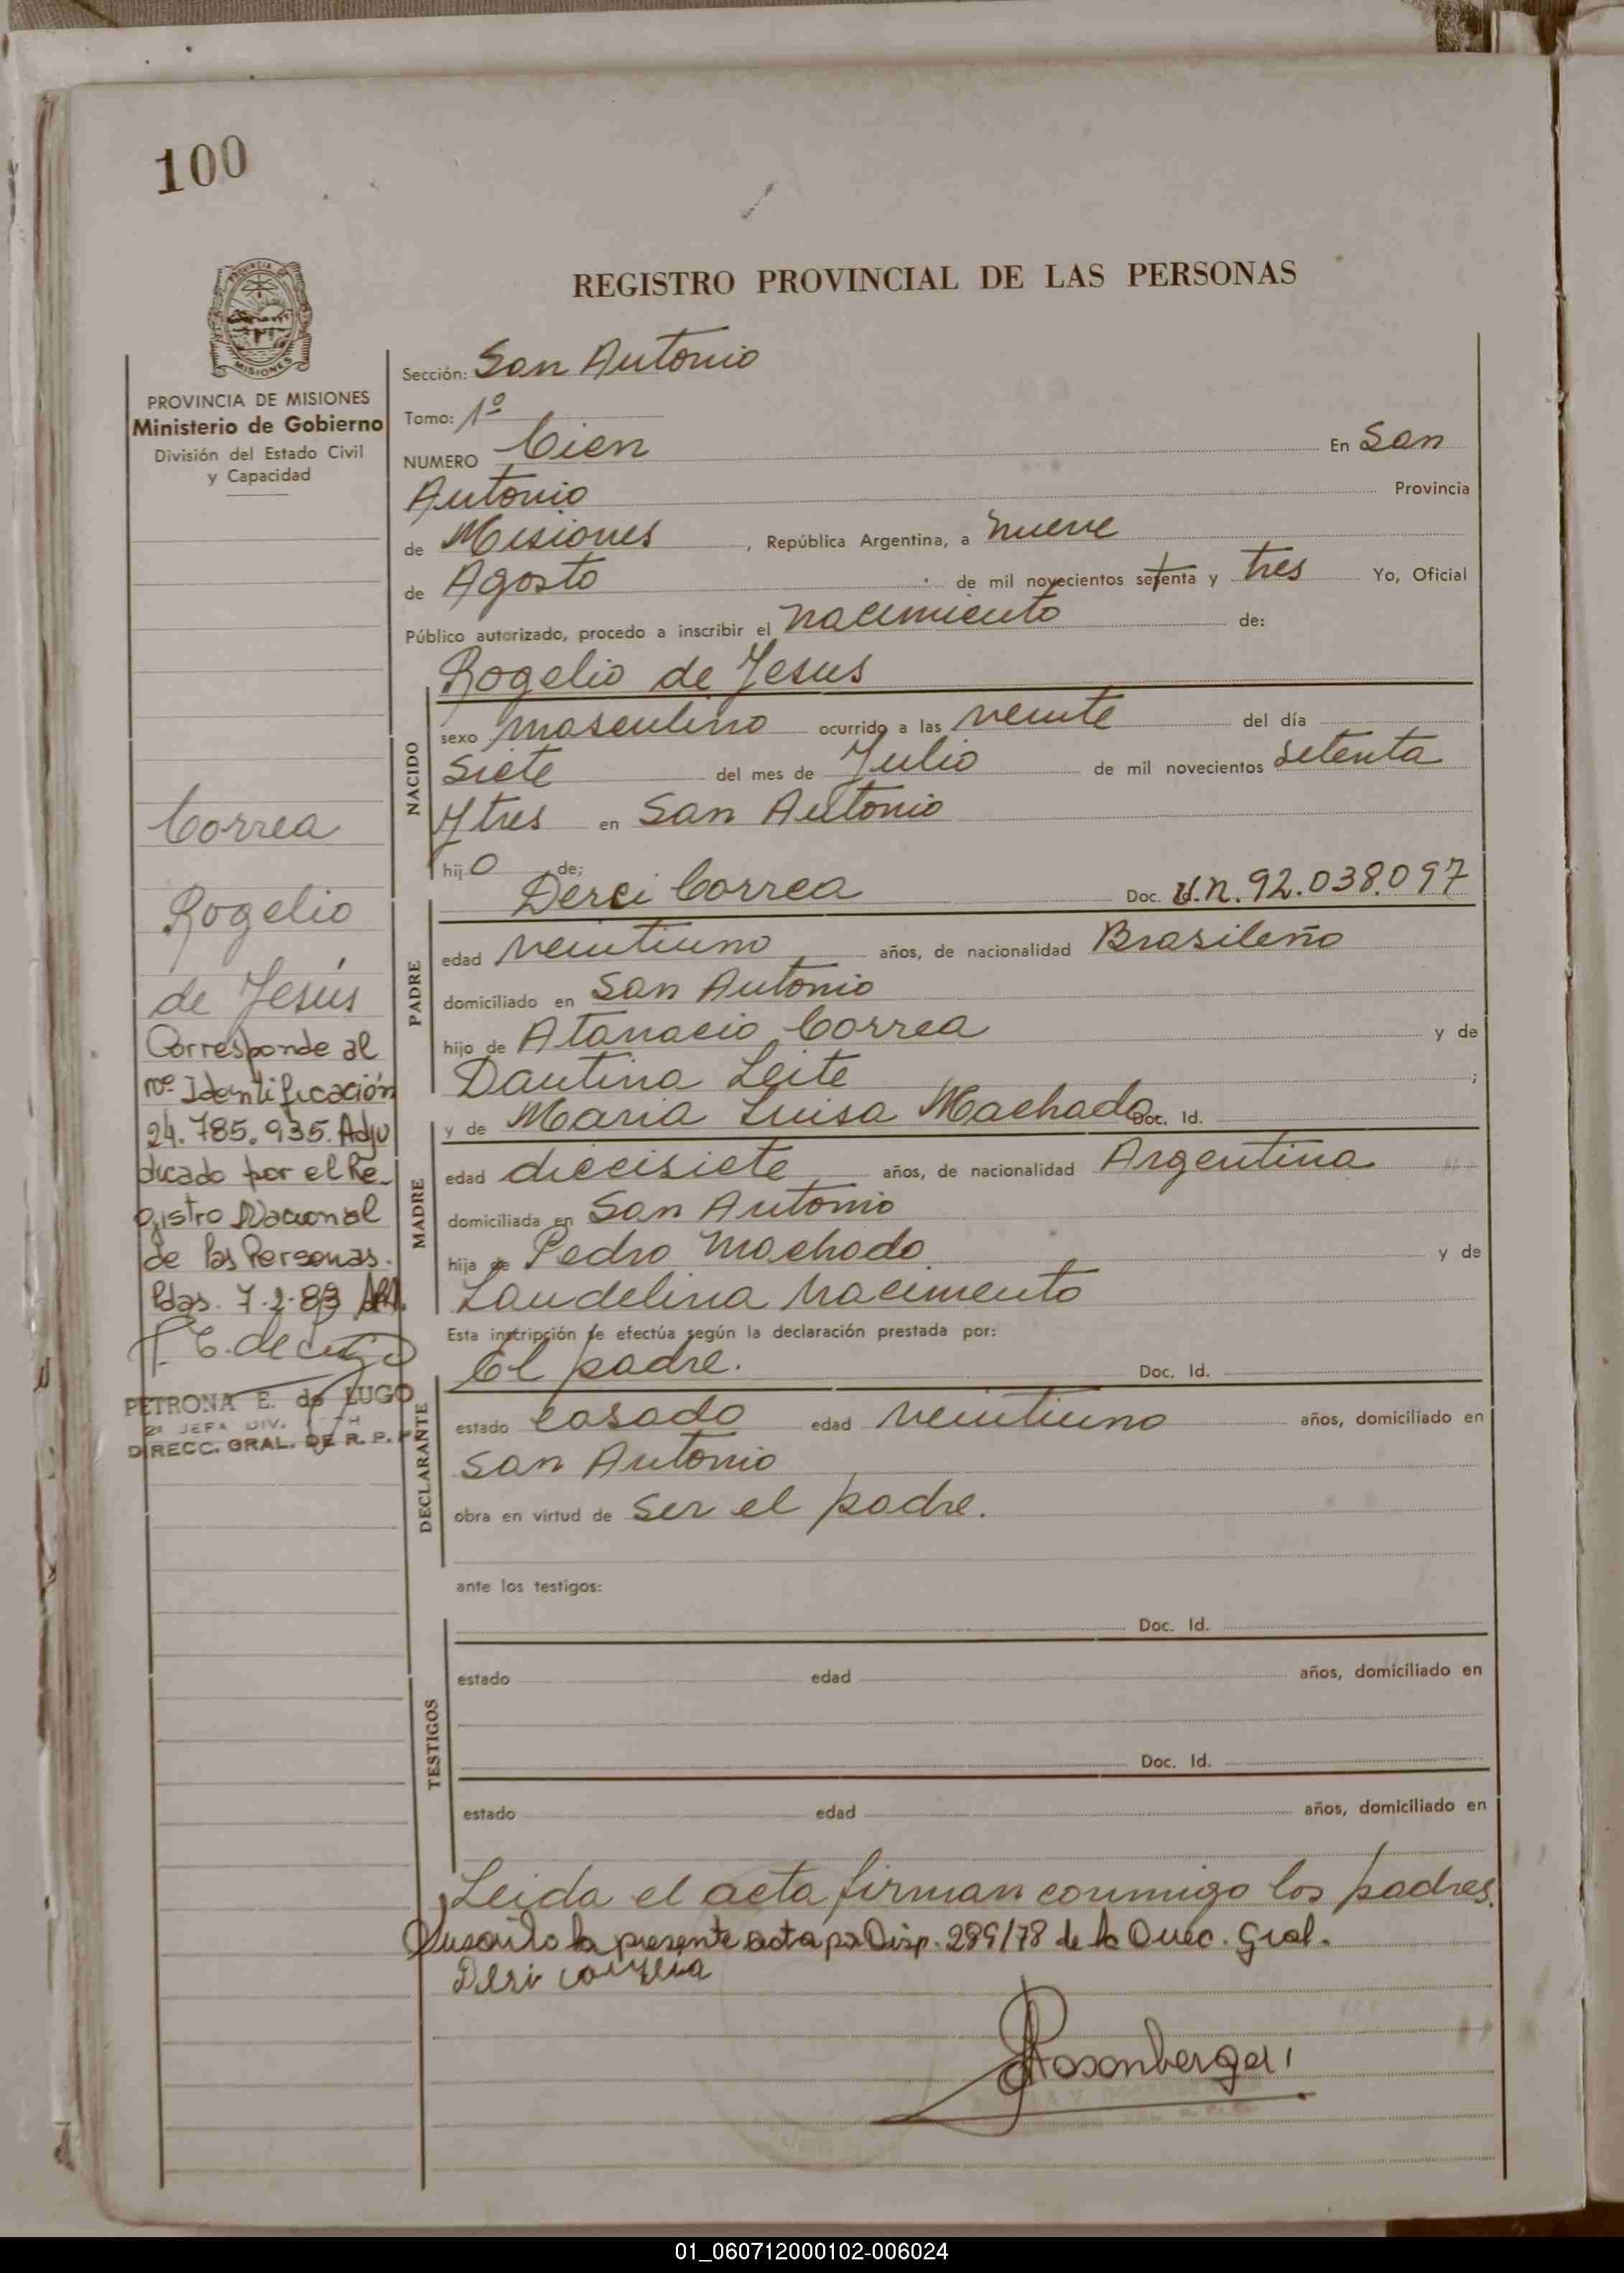 100
PROVINCIA DE MISIONES
Ministerio de Gobierno
División del Estado Civil
y Capacidad
REGISTRO PROVINCIAL DE LAS PERSONAS
Sección: San Antonio
Tomo: 1º
NUMERO Cien En San
Antonio Provincia
de Misiones, República Argentina, a nueve
de Agosto de mil novecientos setenta y tres Yo, Oficial
Público autorizado, procedo a inscribir el nacimiento de:
Rogelio de Jesus
NACIDO
sexo masculino ocurrido a las veinte del día
siete del mes de Julio de mil novecientos setenta
y tres en San Antonio
hijo de:
Derci Correa Doc. U.N. 92.038.097
PADRE
edad veintiuno años, de nacionalidad Brasileño
domiciliado en San Antonio
hijo de Atanacio Correa y de
Dautina Leite ;
y de Maria Luisa Machado Doc. Id.
MADRE
edad diecisiete años, de nacionalidad Argentina
domiciliada en San Antonio
hija de Pedro Machado y de
Laudelina Nacimento
Esta inscripción se efectúa según la declaración prestada por:
El padre. Doc. Id.
DECLARANTE
estado Casado edad veintiuno años, domiciliado en
San Antonio
obra en virtud de ser el padre.
ante los testigos:
Doc. Id.
TESTIGOS
estado edad años, domiciliado en
Doc. Id.
estado edad años, domiciliado en
Leida el acta firman conmigo los padres.
la presente acta por Disp. 289/78 de la Direc. Gral.
Correa
Rogelio
de Jesús
Corresponde al
Nº Identificación
24.785.935. Adju
dicado por el Re-
gistro Nacional
de las Personas.
Pdas. 7.2.83
PETRONA E. de LUGO
2ª JEFA DIV.
DIRECC. GRAL. DE R. P. P.
01_060712000102-006024